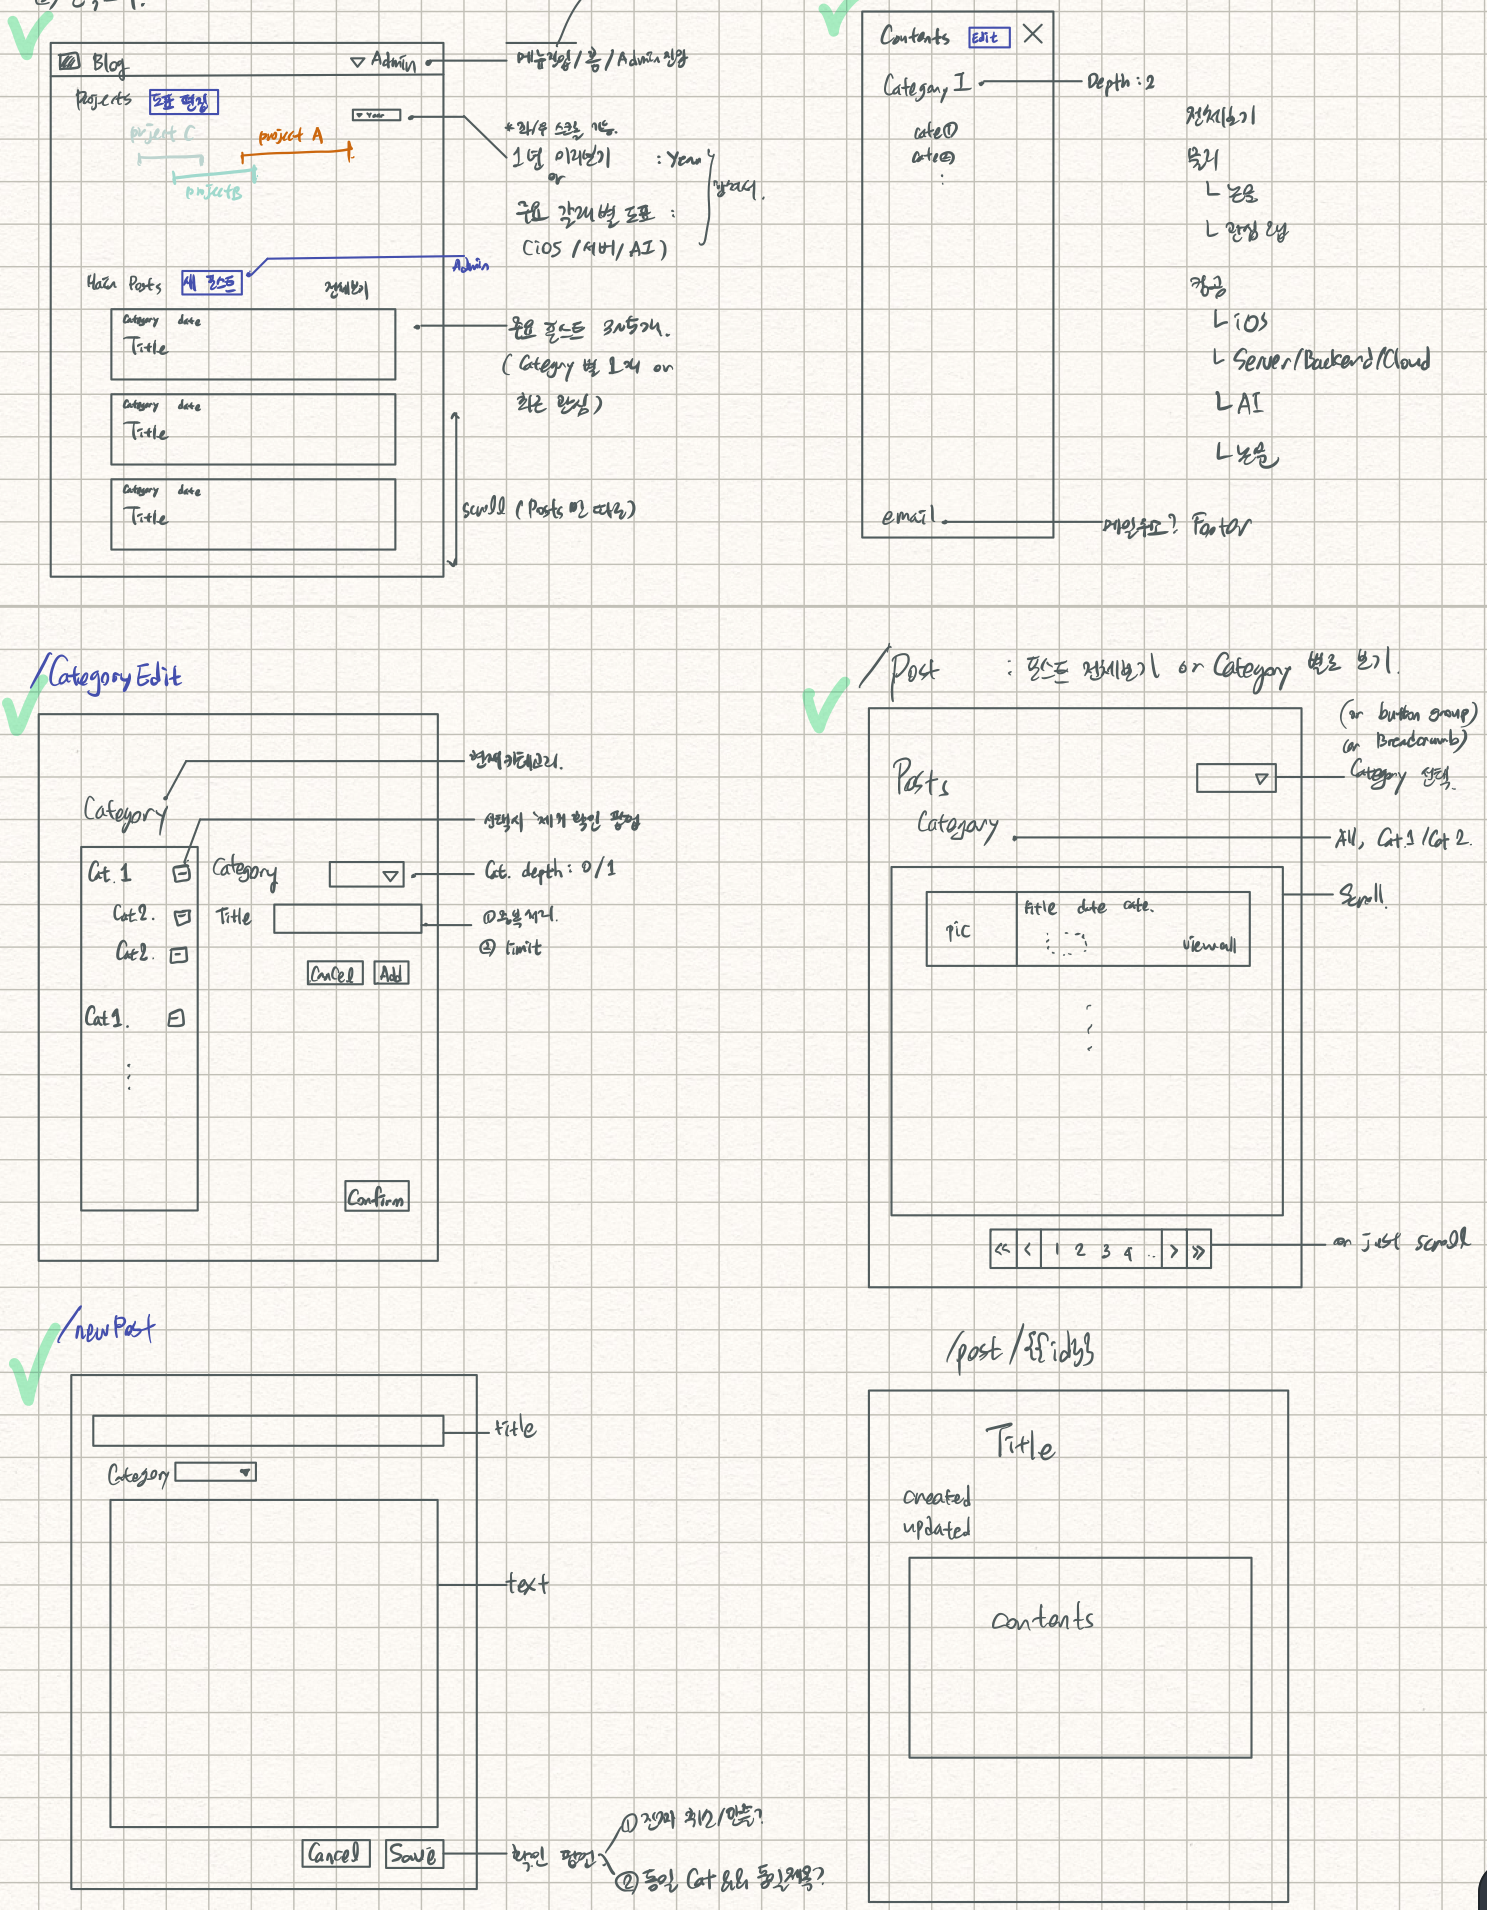 Blog
▽ Admin
메뉴진입/폼/Admin 진입
Projects
도표 편집
project C
project A
project B
▾ Year
* 좌/우 스크롤 가능.
1년 미리보기 : Year
or
주요 갈래별 도표 :
(iOS/서버/AI)
Main Posts
새 포스트
Admin
전체보기
Category date
Title
Category date
Title
Category date
Title
주요 포스트 3~5개.
(Category 별 1개 or
최근 관심)
scroll (Posts만 따로)
Contents
Edit
Category 1
Depth : 2
cate①
cate②
:
email
메일주소? Footer
전체보기
물리
ㄴ 논술
ㄴ 관심 랩
컴공
ㄴ iOS
ㄴ Server/Backend/Cloud
ㄴ AI
ㄴ 논술
/CategoryEdit
현재 카테고리.
Category
선택시 제거 확인 팝업
Cat. 1
Cat 2.
Cat 2.
Cat 1.
Category
Cat. depth : 0/1
Title
①중복처리.
② limit
Cancel
Add
Confirm
/Post : 포스트 전체보기 or Category 별로 보기.
(or button group)
(or Breadcrumb)
Posts
Category 선택.
Category
All, Cat.1/Cat 2.
Scroll.
pic
title date cate.
viewall
<< < 1 2 3 4 .. > >>
or just scroll
/newPost
title
Category
text
Cancel
Save
확인 팝업
① 진짜 취소/만듦?
② 동일 Cat && 동일제목?
/post/{{id}}
Title
created
updated
contents